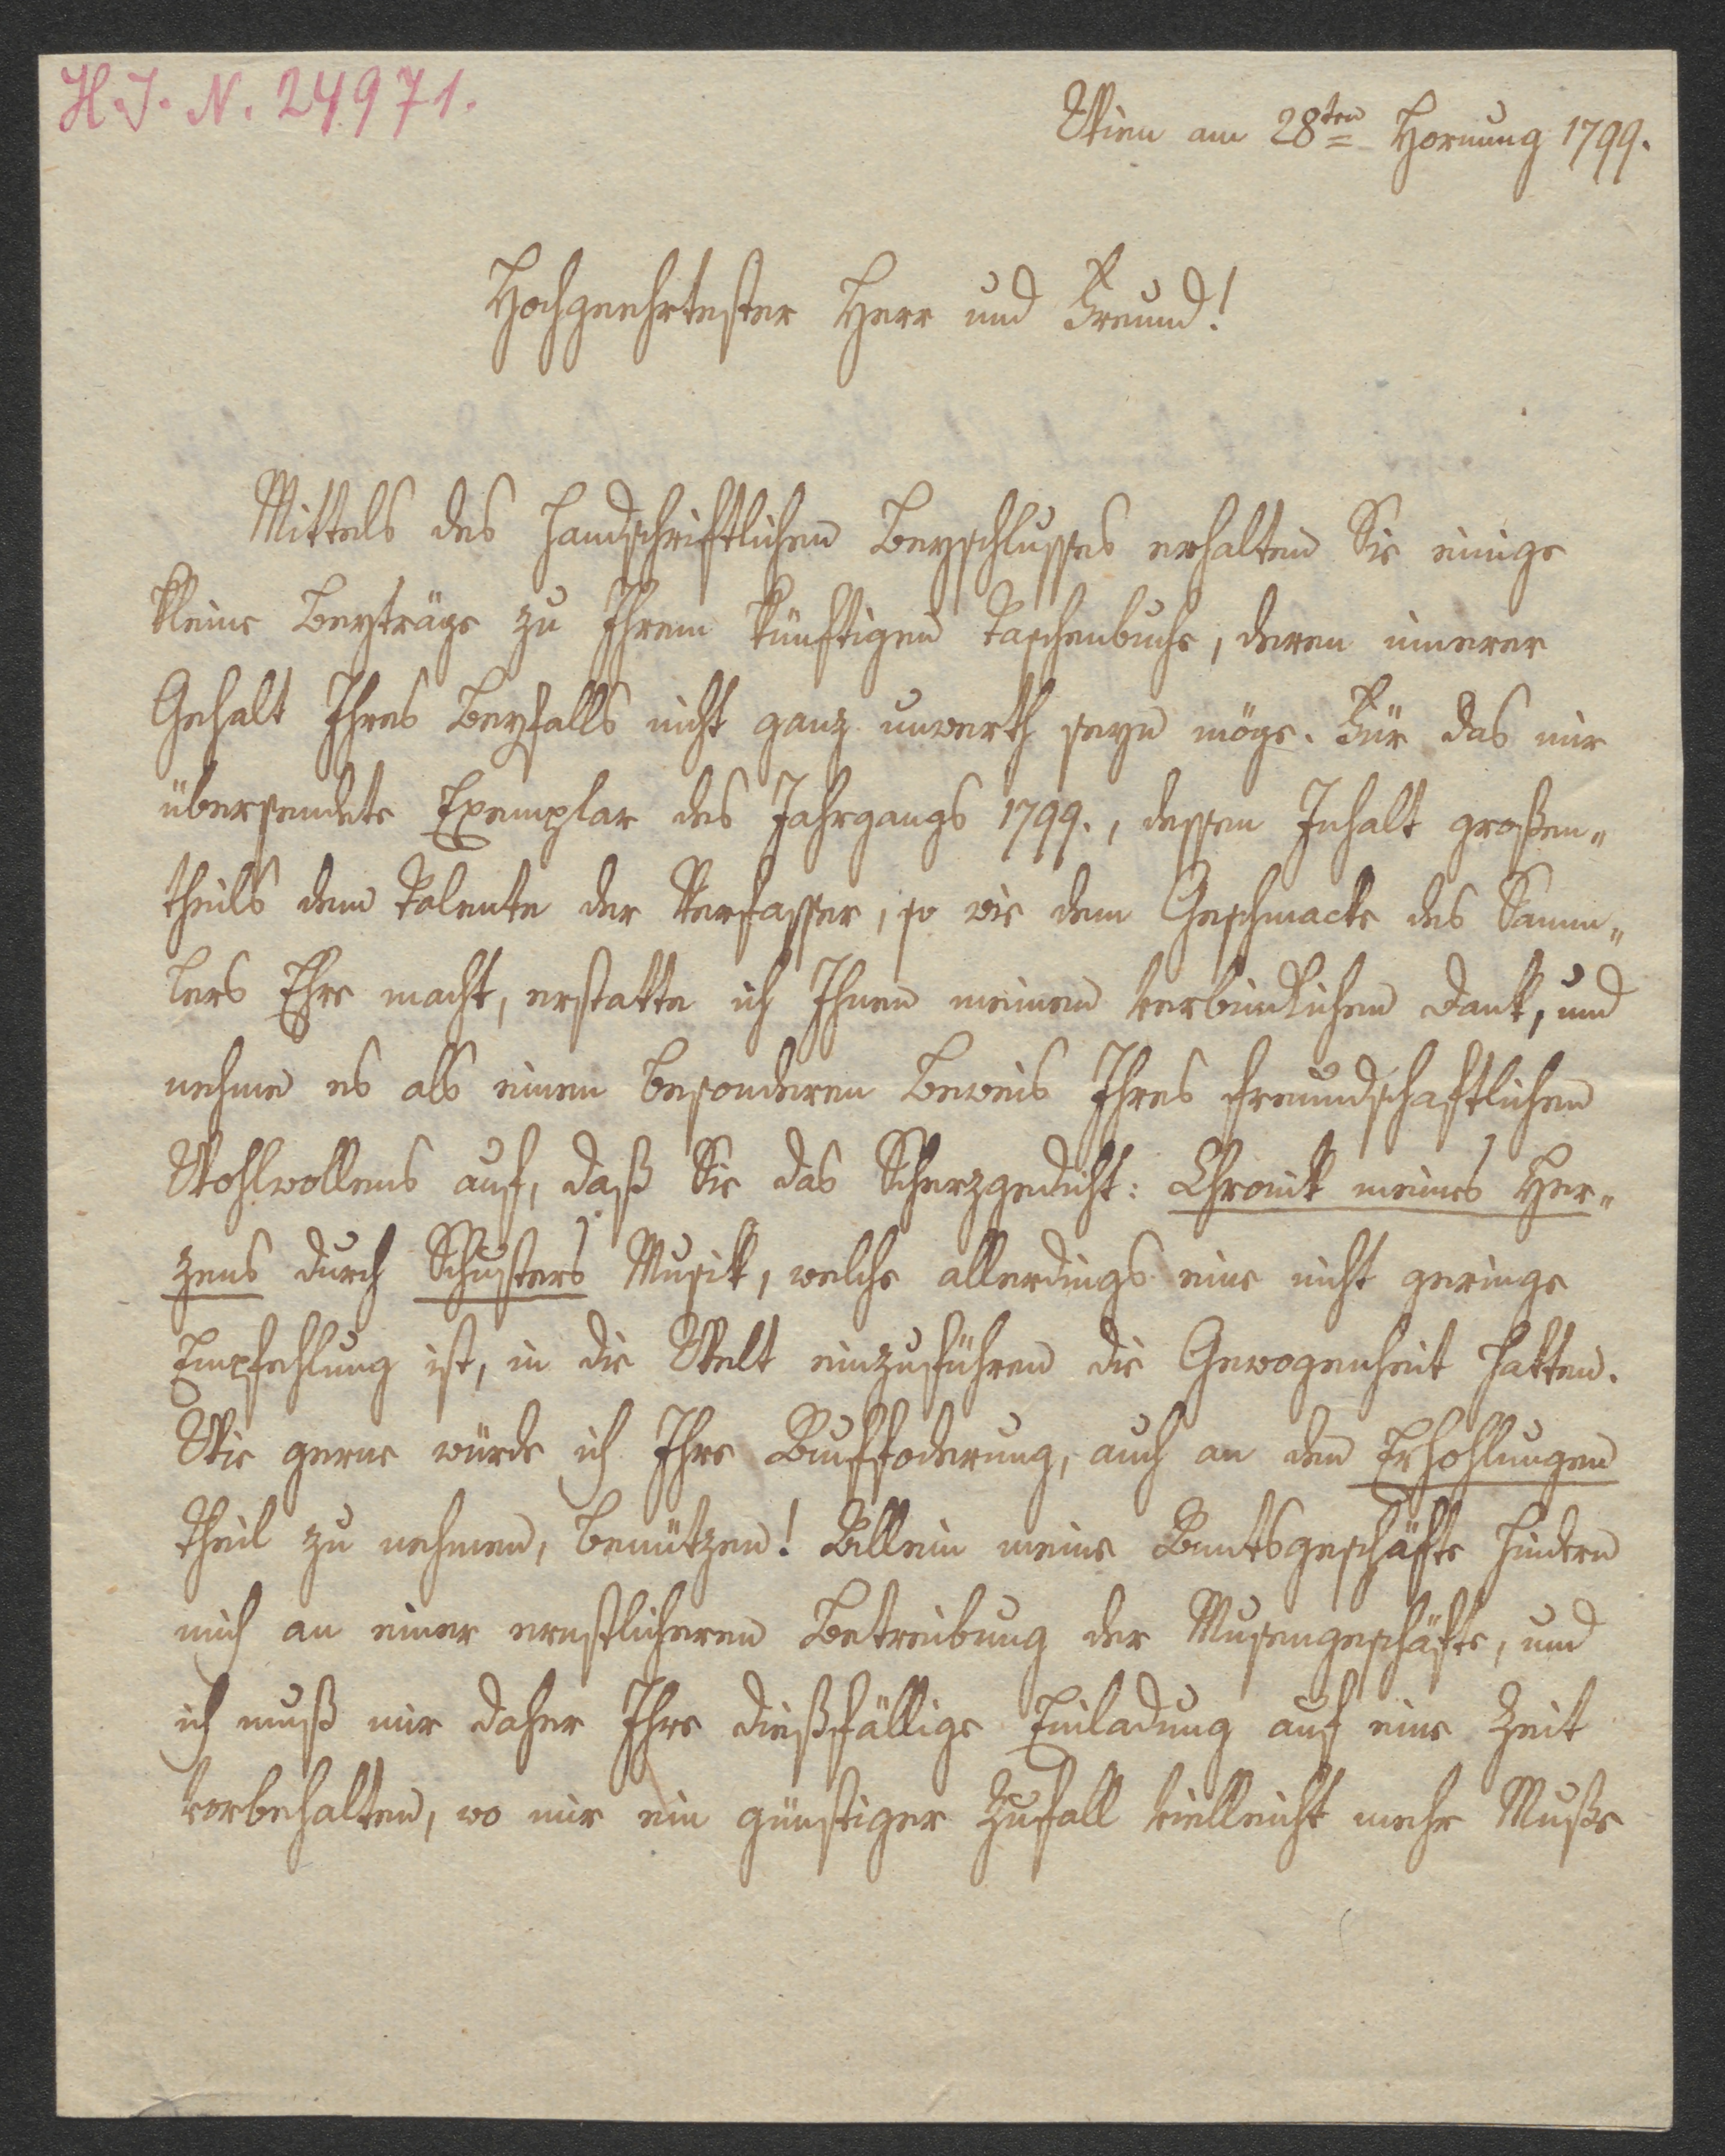 H. J. N. 24971.
Wien am 28ten Hornung 1799.
Hochgeehrtester Herr und Freund!
Mittels des handschriftlichen Beyschlusses erhalten Sie einige
kleine Beyträge zu Ihrem künftigen Taschenbuche, deren innerer
Gehalt Ihres Beyfalls nicht ganz unwerth seyn möge. Für das mir
übersendete Exemplar des Jahrgangs 1799., dessen Inhalt großen„
theils dem Talente der Verfasser, so wie dem Geschmacke des Samm„
lers Ehre macht, erstatte ich Ihnen meinen verbindlichen Dank, und
nehme es als einen besonderen Beweis Ihres freundschaftlichen
Wohlwollens auf, daß Sie das Scherzgedicht: Chronik meines Her„
zens durch Schusters Musik, welche allerdings eine nicht geringe
Empfehlung ist, in die Welt einzuführen die Gewogenheit hatten.
Wie gerne würde ich Ihre Auffoderung, auch an den Erhohlungen
theil zu nehmen, benützen! Allein meine Amtsgeschäfte hindern
mich an einer ernstlicheren Betreibung der Musengeschäfte, und
ich muß mir daher Ihre dießfällige Einladung auf eine Zeit
vorbehalten, wo mir ein günstiger Zufall vielleicht mehr Muße